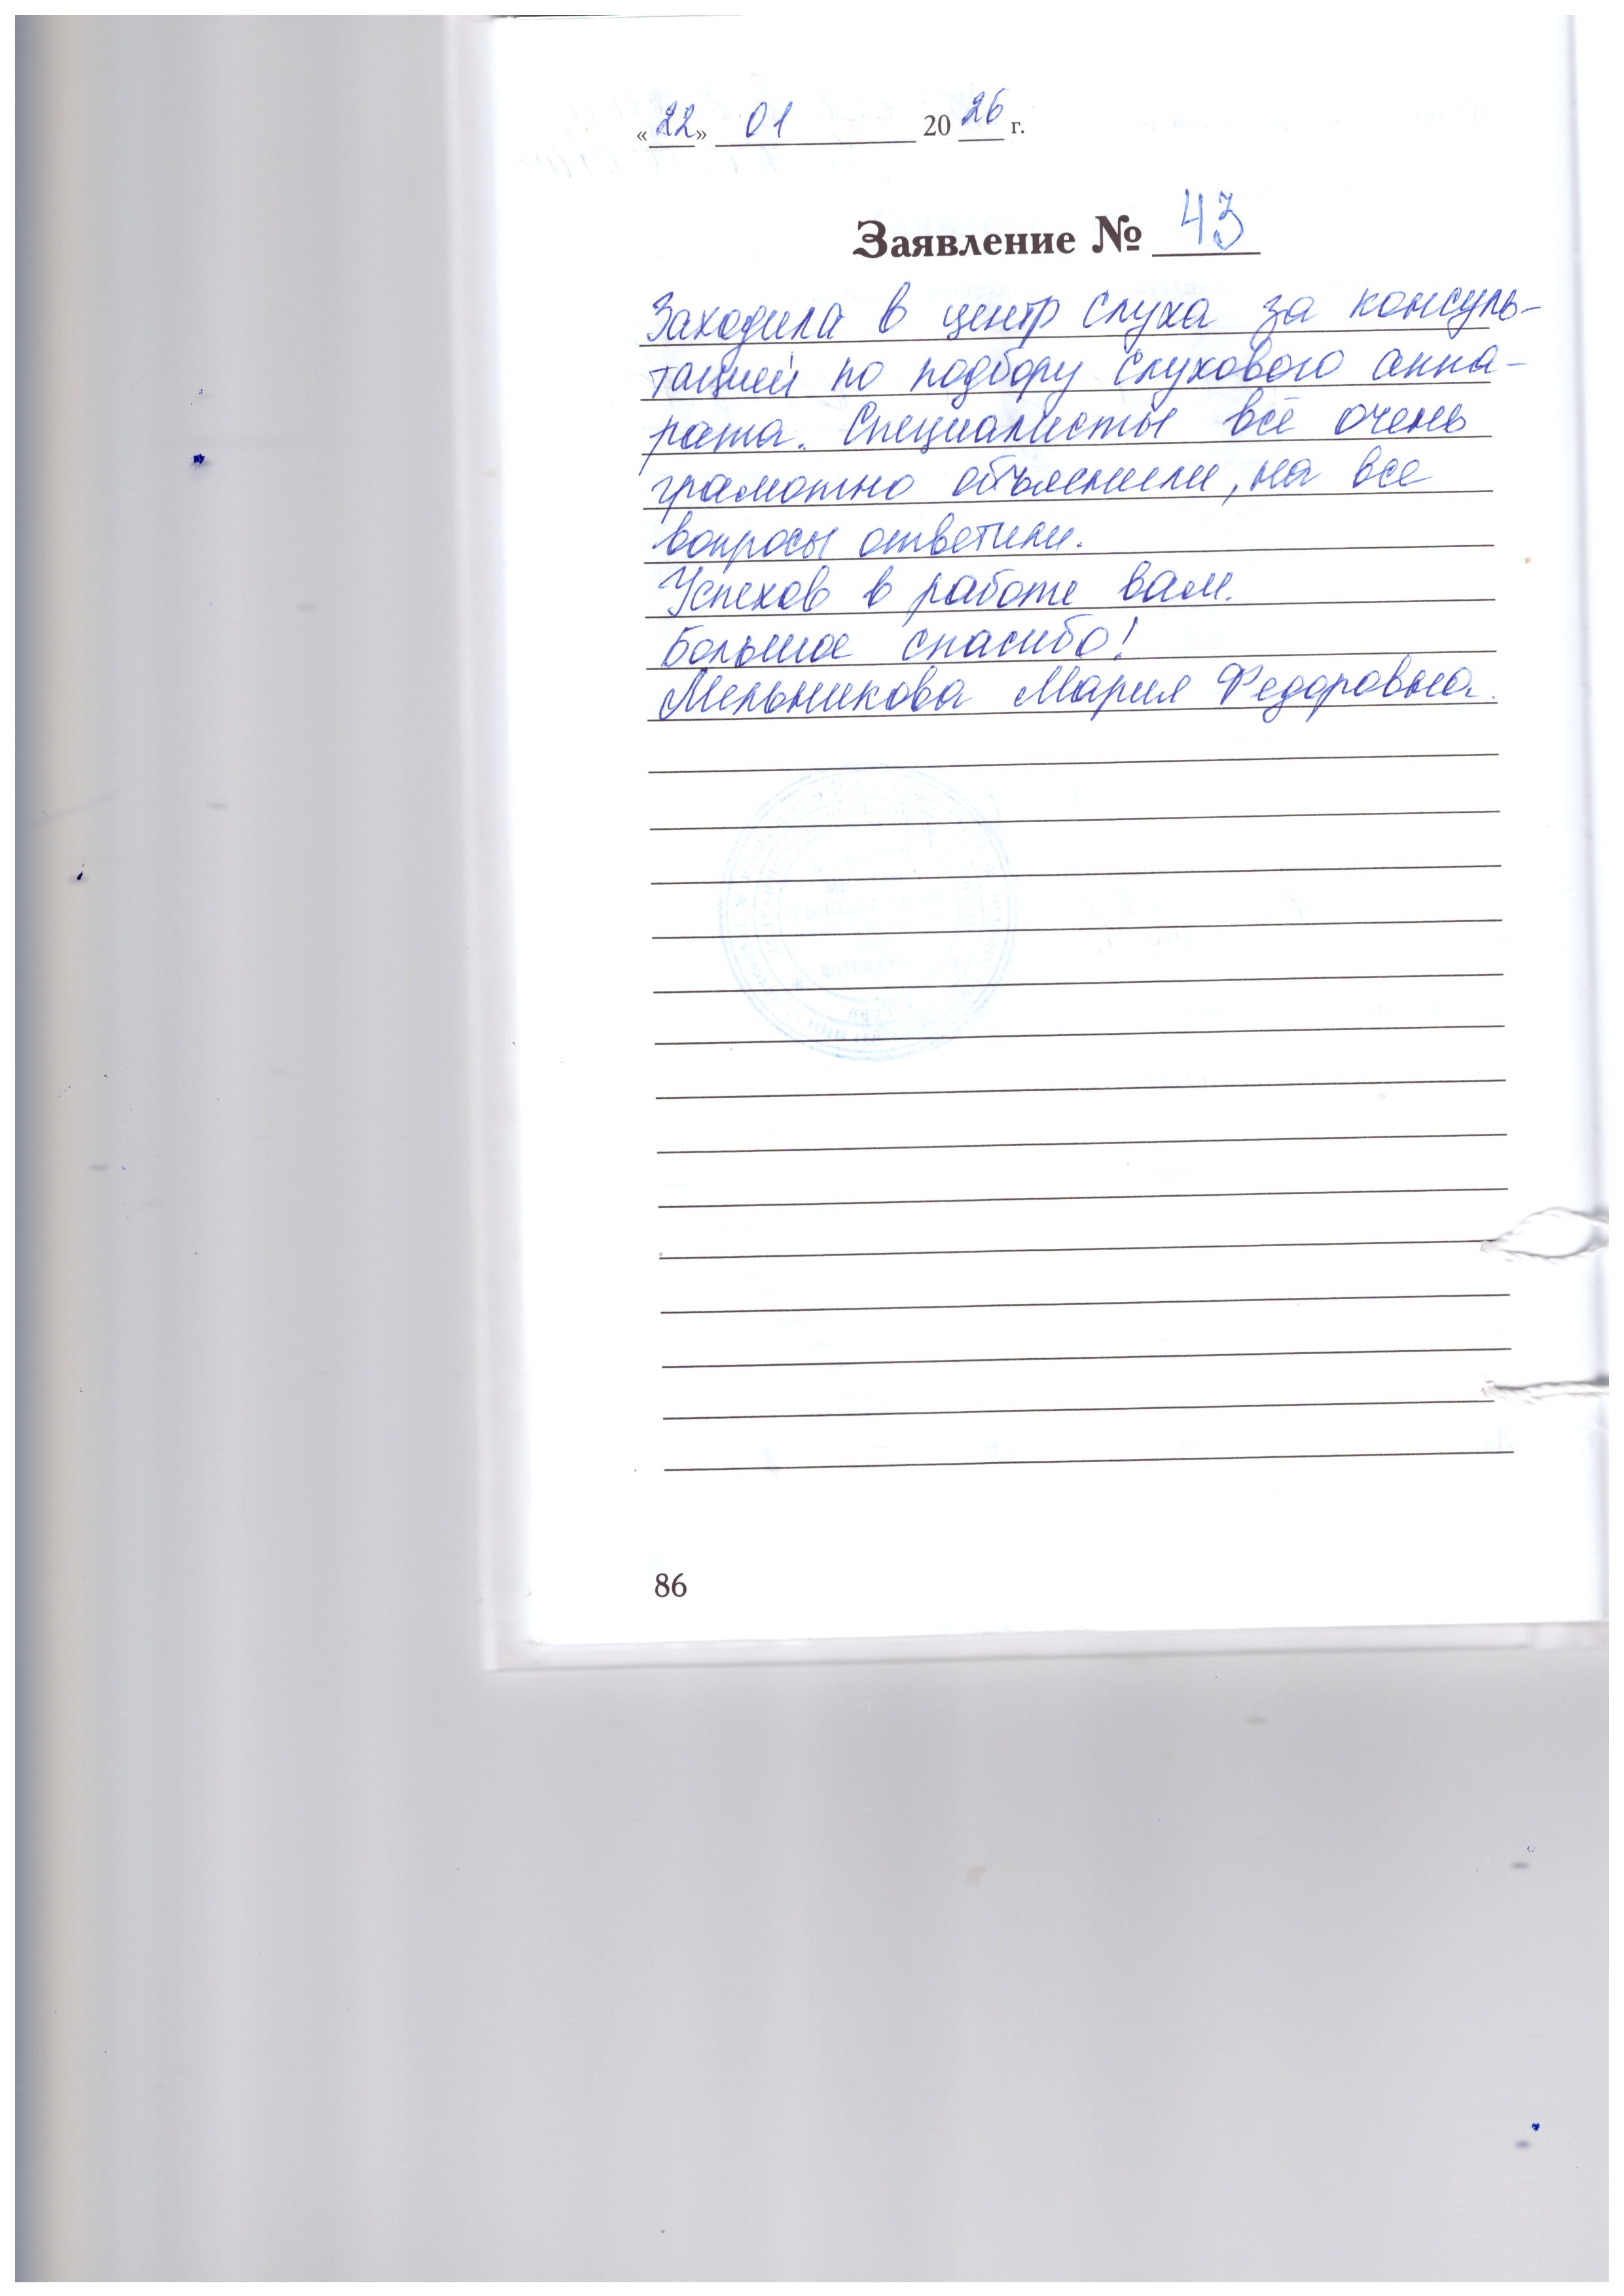 «22» 01 2026 г.
Заявление № 43
Заходила в центр слуха за консуль-
тацией по подбору слухового аппа-
рата. Специалисты всё очень
грамотно объяснили, на все
вопросы ответили.
Успехов в работе вам.
Большое спасибо!
Мельникова Мария Федоровна.
86